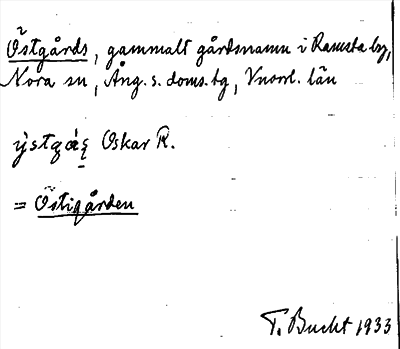 Östgårds, gammalt gårdsnamn i Ramsta by,
Nora sn, Ång. s. doms. tg, Vnorrl. län
ỳstgáş Oskar R.
= Östigården
T. Bucht 1933